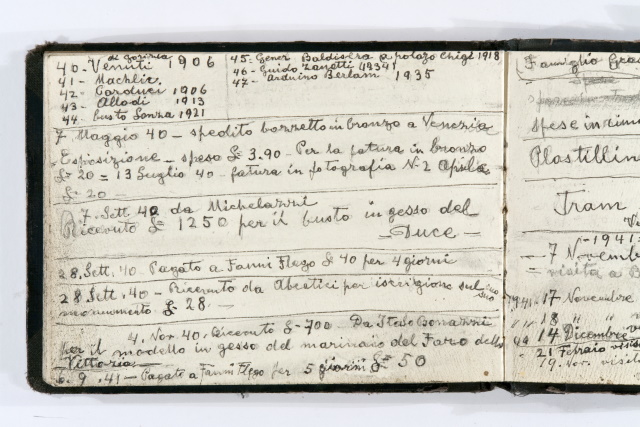 40 - Venuti di Gorizia 1906
41 - Machlic.
42 - Carduci 1906
43 - Allodi 1913
44. busto Sonza 1921
45. Gener. Baldisera a palazo Chigi 1918
46 - Guido Zanotti
47 - Arduino Berlam 1935
7 Maggio 40 - spedito bozzetto in bronzo a Venezia
Esposizione - speso £ 3.90 - Per la fatura in bronzo
£ 20 = 13 Luglio 40 - fatura in fotografia N. 2 Aprila
£ 20 -
7. Sett. 40 da Michelazzi
Riceuuto £ 1250 per il busto in gesso del
- Duce -
28. Sett. 40 Pagato a Fanni Flego £ 40 per 4 giorni
28. Sett. 40 - Riceuuto da per iscrizione sul suo
monumento £ 28 -
4. Nov. 40. Riceuuto £ 700. Da Italo Bonazzi
per il modello in gesso del marinaio del Faro della
Vittoria
6. 9. 41 - Pagato a Fanni Flego per 5 giorni £ 50
Famiglia
spese in
Plastillin
Tram
- 1941
- 7 Novemb
- visita a
1941. 17 Novembre
" " 18 "
14 Dicembre
" 21 Febraio
19. Nov. visit